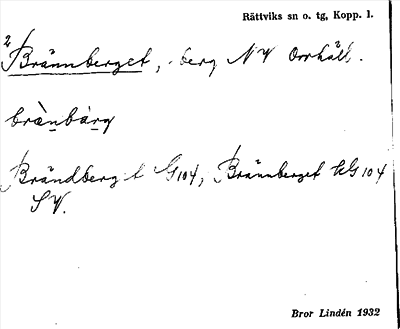 Rättviks sn o. tg, Kopp. l.
2 Brännberget, berg NV Orrhäll.
brænbærg
Brändberget G104, Brännberget kG 104
SV.
Bror Lindén 1932